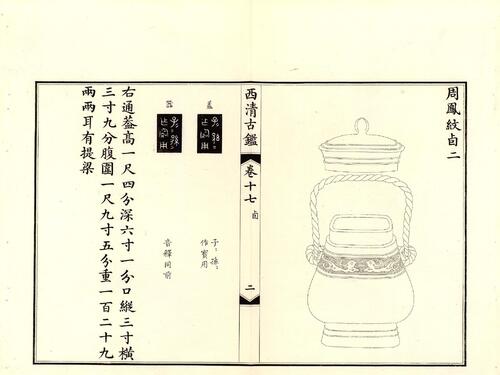 周鳳紋卣二
西清古鑑
卷十七
卣
二
蓋
器
子〻孫〻
作寶用
音釋同前
右通葢高一尺四分深六寸一分口縱三寸橫
三寸九分腹圍一尺九寸五分重一百二十九
兩兩耳有提梁